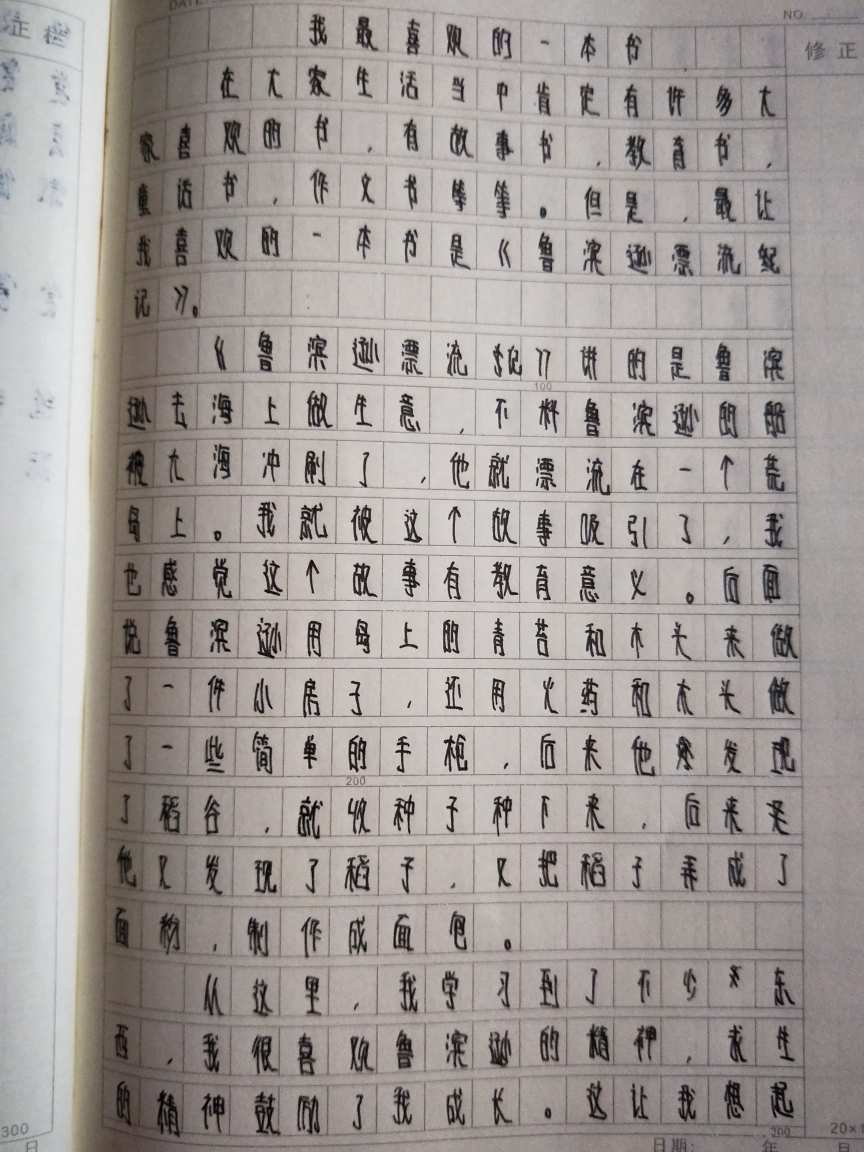 DATE
NO.
修正
我最喜欢的一本书
在大家生活当中肯定有许多大
家喜欢的书，有故事书，教育书，
童话书，作文书等等。但是，最让
我喜欢的一本书是《鲁滨逊漂流纪
记》。
《鲁滨逊漂流记》讲的是鲁滨
逊去海上做生意，不料鲁滨逊的船
被大海冲刷了，他就漂流在一个荒
岛上。我就被这个故事吸引了，我
也感觉这个故事有教育意义。后面
说鲁滨逊用岛上的青苔和木头来做
了一件小房子，还用火药和木头做
了一些简单的手枪，后来他发现
了稻谷，就收种子种下来，后来
他又发现了稻子，又把稻子弄成了
面粉，制作成面包。
从这里，我学习到了不少东
西，我很喜欢鲁滨逊的精神，求生
的精神鼓励了我成长。这让我想起
100
200
300
300
20×1
日期:
年
月
日